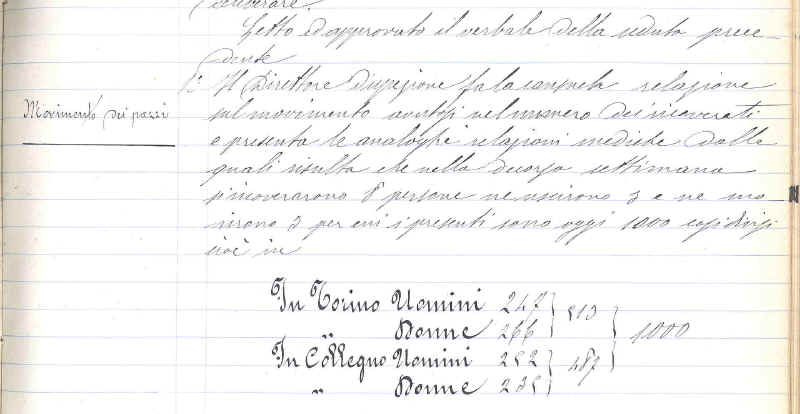 Letto ed approvato il verbale della seduta prece-
dente
Movimento dei pazzi
1° Il Direttore d'ispezione fa la consueta relazione
sul movimento avutosi nel numero dei ricoverati
e presenta le analoghe relazioni mediche dalle
quali risulta che nella decorsa settimana
si ricoverarono 8 persone ne uscirono 3 e ne mo-
rirono 3 per cui i presenti sono oggi 1000 così divisi
cioè in
In Torino Uomini 247 } 513
" Donne 266 } 1000
In Collegno Uomini 252 } 487
" Donne 235